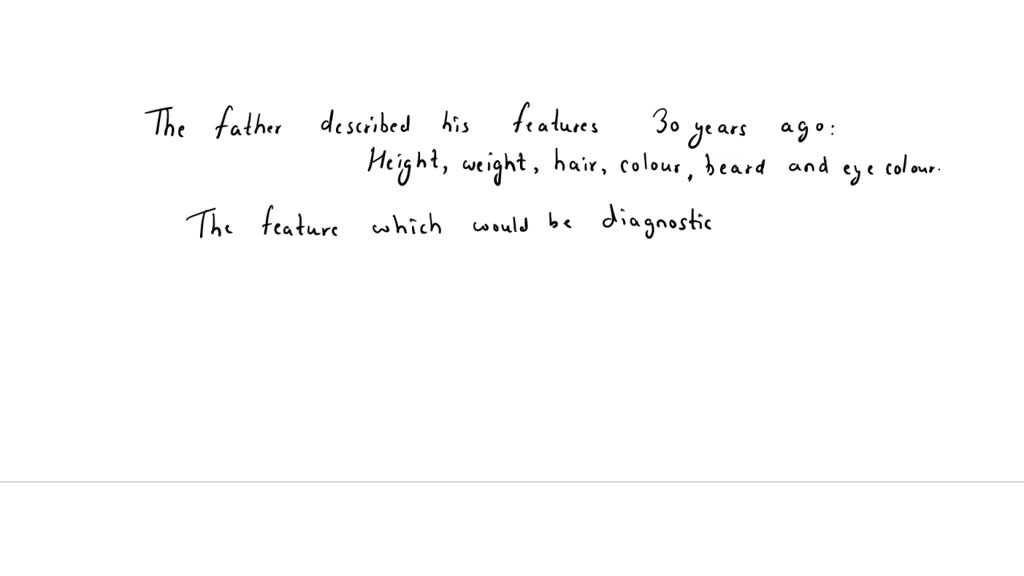 The father described his features 30 years ago:
Height, weight, hair, colour, beard and eye colour.
The feature which would be diagnostic